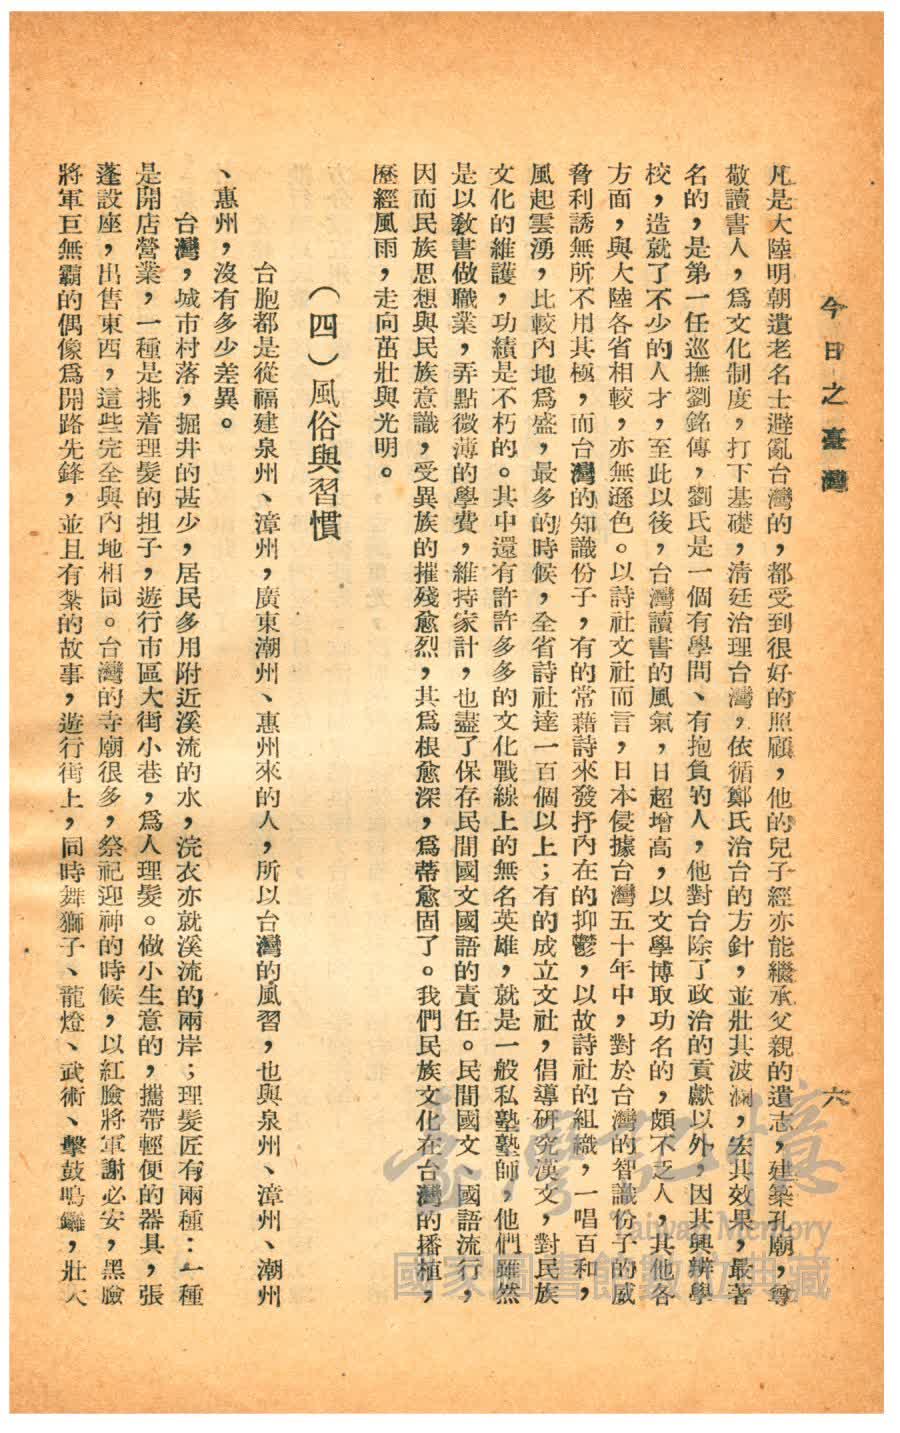 今日之臺灣
六
凡是大陸明朝遺老名士避亂台灣的，都受到很好的照顧，他的兒子經亦能繼承父親的遺志，建築孔廟，尊
敬讀書人，爲文化制度，打下基礎，清廷治理台灣，依循鄭氏治台的方針，並壯其波瀾，宏其效果，最著
名的，是第一任巡撫劉銘傳，劉氏是一個有學問、有抱負的人，他對台除了政治的貢獻以外，因其興辨學
校，造就了不少的人才，至此以後，台灣讀書的風氣，日超增高，以文學博取功名的，頗不乏人，其他各
方面，與大陸各省相較，亦無遜色。以詩社文社而言，日本侵據台灣五十年中，對於台灣的智識份子的威
脅利誘無所不用其極，而台灣的知識份子，有的常藉詩來發抒內在的抑鬱，以故詩社的組織，一唱百和，
風起雲湧，比較內地爲盛，最多的時候，全省詩社達一百個以上；有的成立文社，倡導研究漢文，對民族
文化的維護，功績是不朽的。其中還有許許多多的文化戰線上的無名英雄，就是一般私塾塾師，他們雖然
是以教書做職業，弄點微薄的學費，維持家計，也盡了保存民間國文國語的責任。民間國文、國語流行，
因而民族思想與民族意識，受異族的摧殘愈烈，其爲根愈深，爲蒂愈固了。我們民族文化在台灣的播植，
歷經風雨，走向茁壯與光明。
（四）風俗與習慣
台胞都是從福建泉州、漳州，廣東潮州、惠州來的人，所以台灣的風習，也與泉州、漳州、潮州
、惠州，沒有多少差異。
台灣，城市村落，掘井的甚少，居民多用附近溪流的水，浣衣亦就溪流的兩岸；理髮匠有兩種：一種
是開店營業，一種是挑着理髮的担子，遊行市區大街小巷，爲人理髮。做小生意的，攜帶輕便的器具，張
蓬設座，出售東西，這些完全與內地相同。台灣的寺廟很多，祭祀迎神的時候，以紅臉將軍謝必安，黑臉
將軍巨無霸的偶像爲開路先鋒，並且有紮的故事，遊行街上，同時舞獅子、龍燈、武術、擊鼓鳴鑼，壯大
臺灣記憶
Taiwan Memory
國家圖書館數位典藏